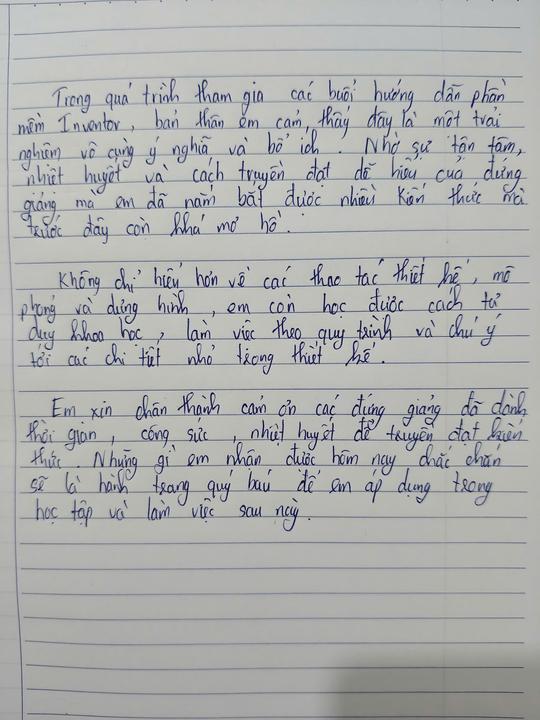 Trong quá trình tham gia các buổi hướng dẫn phần
mềm Inventor, bản thân em cảm thấy đây là một trải
nghiệm vô cùng ý nghĩa và bổ ích. Nhờ sự tận tâm,
nhiệt huyết và cách truyền đạt dễ hiểu của đứng
giảng mà em đã nắm bắt được nhiều kiến thức mà
trước đây còn khá mơ hồ.
Không chỉ hiểu hơn về các thao tác thiết kế, mô
phỏng và dựng hình, em còn học được cách tư
duy khoa học, làm việc theo quy trình và chú ý
tới các chi tiết nhỏ trong thiết kế.
Em xin chân thành cảm ơn các đứng giảng đã dành
thời gian, công sức, nhiệt huyết để truyền đạt kiến
thức. Những gì em nhận được hôm nay chắc chắn
sẽ là hành trang quý báu để em áp dụng trong
học tập và làm việc sau này.